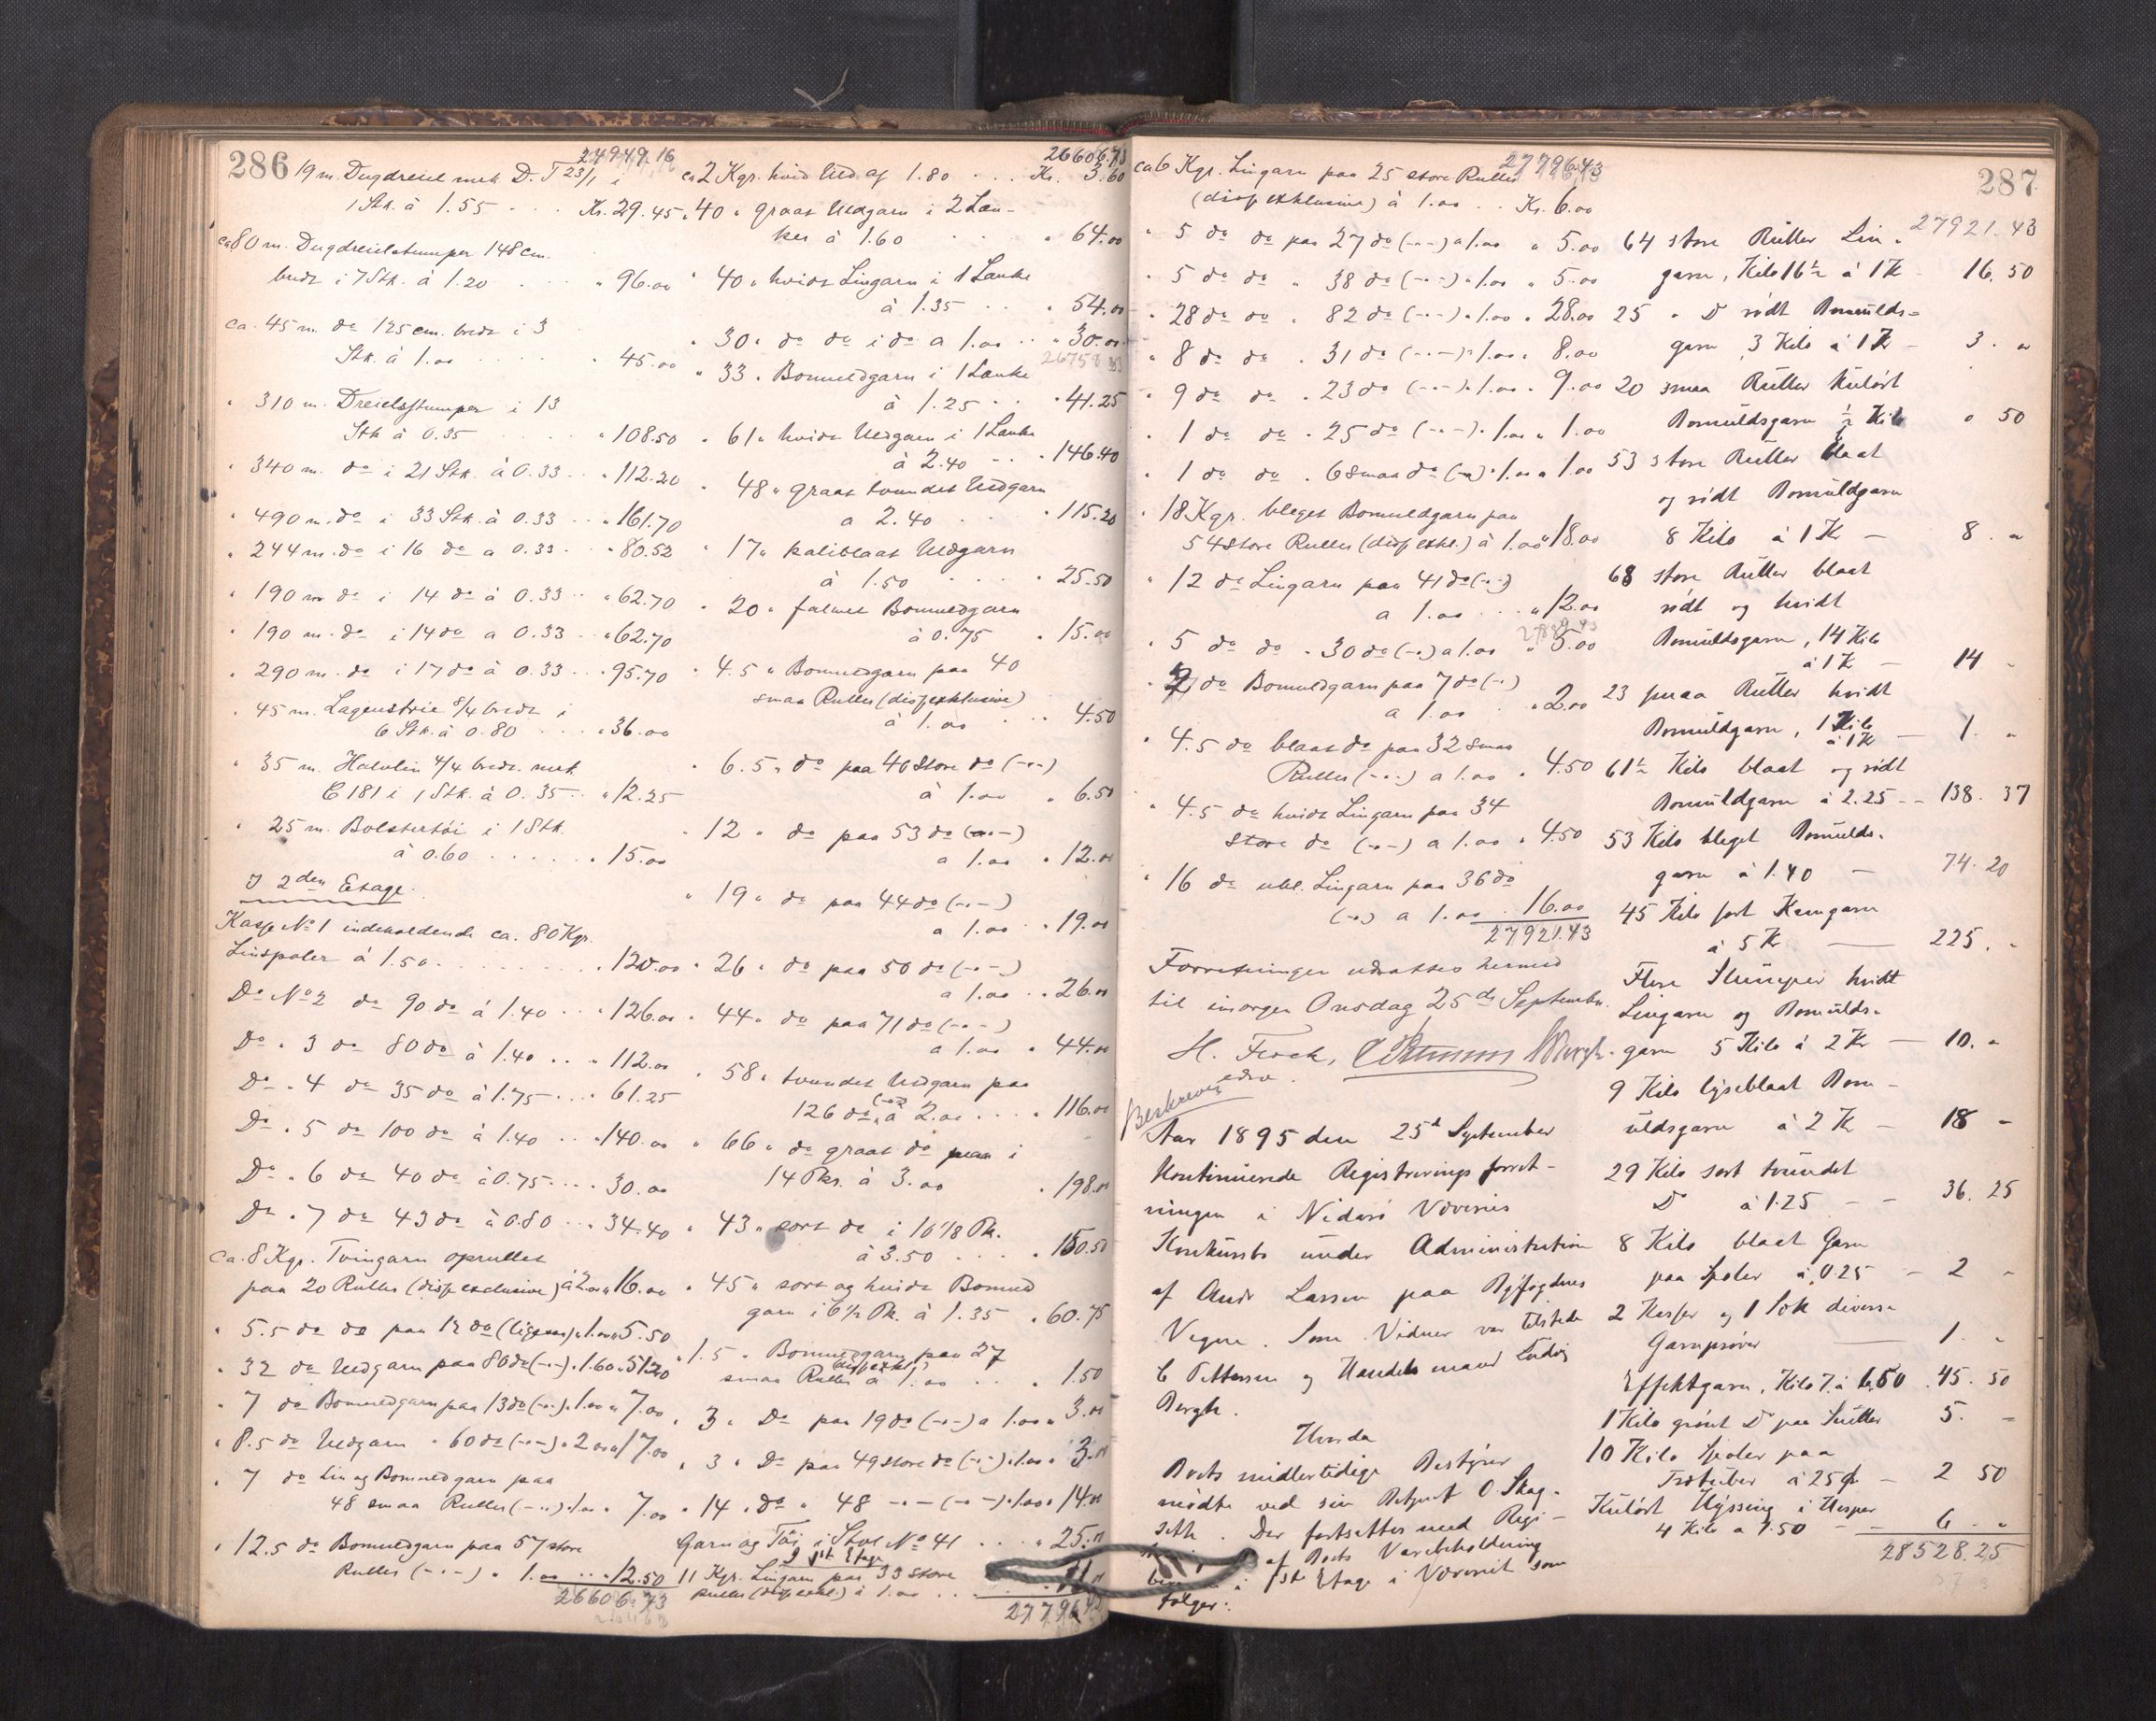 286
24949.16
19 m. Dugdreiel mrk. D. T 23/1 i
1 Stk. à 1.55 . . . Kr. 29.45
ca 80 m. Dugdreielstumper 148 cm.
bredt i 7 Stk. à 1.20 . . . " 96.00
ca. 45 m. do 125 cm. bredt i 3
Stk. à 1.00 . . . . " 45.00
" 310 m. Dreielsstumper i 13
Stk à 0.35 . . . . " 108.50
" 340 m. do i 21 Stk. à 0.33 . . " 112.20
" 490 m. do i 33 Stk. à 0.33 . . " 161.70
" 244 m. do i 16 do a 0.33 . . " 80.52
" 190 m do i 14 do à 0.33 . . " 62.70
" 190 m. do i 14 do a 0.33 . . " 62.70
" 290 m. do i 17 do à 0.33 . . " 95.70
" 45 m. Lagenstrie 8/4 bredt i
6 Stk. à 0.80 . . . " 36.00
" 35 m. Halvlin 4/4 bredt. mrk.
C 181 i 1 Stk. à 0.35 . . " 12.25
" 25 m. Bolstertöi i 1 Stk.
à 0.60 . . . . . . " 15.00
I 2den Etage.
Kasse No 1 indeholdende ca. 80 Kgr.
Linspoler à 1.50 . . . . . . " 120.00
Do No 2 do 90 do à 1.40 . . . " 126.00
Do " 3 do 80 do à 1.40 . . . " 112.00
Do " 4 do 35 do à 1.75 . . . . " 61.25
Do " 5 do 100 do à 1.40 . . . " 140.00
Do " 6 do 40 do à 0.75 . . . . 30.00
Do " 7 do 43 do à 0.80 . . . " 34.40
ca. 8 Kgr. Tvingarn oprullet
paa 20 Ruller (disp exclusive) à 2.00 " 16.00
" 5.5 do do paa 12 do (ligesaa) " 1.00 " 5.50
" 32 do Uldgarn paa 80 do (-"-) " 1.60 " 51.20
" 7 do Bomuldgarn paa 13 do (-"-) " 1.00 " 7.00
" 8.5 do Uldgarn " 60 do (-"-) " 2.00 " 17.00
" 7 do Lin og Bomuldgarn paa
48 smaa Ruller (-"-) " 1.00 " 7.00
" 12.5 do Bomuldgarn paa 57 store
Ruller (-"-) " 1.00 . . " 12.50
26606.73
26606.73
ca 2 Kgr. hvid Uld af 1.80 . . . Kr. 3.60
" 40 " graat Uldgarn i 2 Lan-
ker à 1.60 . . . " 64.00
" 40 " hvidt Lingarn i 1 Lanke
à 1.35 . . . " 54.00
" 30 " do do i do a 1.00 . . " 30.00
" 33 " Bomuldgarn i 1 Lanke
à 1.25 . . . " 41.25
" 61 " hvidt Uldgarn i 1 Lanke
à 2.40 . . . " 146.40
" 48 " graat tvundet Uldgarn
a 2.40 . . . " 115.20
" 17 " paliblaat Uldgarn
à 1.50 . . . . " 25.50
" 20 " falmet Bomuldgarn
à 0.75 " 15.00
" 4.5 " Bomuldgarn paa 40
smaa Ruller (disp exklusive)
à 1.00 . . . 4.50
" 6.5 " do paa 46 store do (-"-)
à 1.00 " 6.50
" 12 " do paa 53 do (-"-)
a 1.00 " 12.00
" 19 " do paa 44 do (-"-)
a 1.00 " 19.00
" 26 " do paa 50 do (-"-)
a 1.00 . . " 26.00
" 44 " do paa 71 do (-"-)
a 1.00 " 44.00
" 58 " tvundet Uldgarn paa
126 do (-"-) à 2.00 . . . " 116.00
" 66 " do graat do i
14 Pkr. à 3.00 " 198.00
" 43 " sort do i 16 1/8 Pk.
à 3.50 . . . . " 150.50
" 45 " sort og hvidt Bomuld
garn i 6 1/2 Pk. à 1.35 " 60.75
" 1.5 " Bomuldgarn paa 27
smaa Ruller (disp exkl.) à 1.00 . . . " 1.50
" 3 " Do paa 19 do (-"-) a 1.00 " 3.00
" 3 " Do paa 49 store do (-"-) " 1.00 " 3.00
" 14 " do " 48 -"- (-"-) " 1.00 " 14.00
Garn og Töi i Stol No 41 . . . . " 25.00
I 1st Etage
11 Kgr. Lingarn paa 33 store
Ruller (disp exkl.) à 1.00 . . . 11.00
27796.43
287
27796.43
ca 6 Kgr. Lingarn paa 25 store Ruller
(disp exklusive) à 1.00 . . Kr. 6.00
" 5 do do paa 27 do (-"-) a 1.00 " 5.00
" 5 do do " 38 do (-"-) " 1.00 " 5.00
" 28 do do " 82 do (-"-) " 1.00 " 28.00
" 8 do do " 31 do (-"-) " 1.00 " 8.00
" 9 do do " 23 do (-"-) " 1.00 " 9.00
" 1 do do " 25 do (-"-) " 1.00 " 1.00
" 1 do do " 6 smaa do (-"-) " 1.00 " 1.00
" 18 Kgr. bleget Bomuldgarn paa
54 store Ruller (disp exkl.) à 1.00 " 18.00
" 12 do Lingarn paa 41 do (-"-)
a 1.00 . . . " 12.00
" 5 do do " 30 do (-"-) a 1.00 " 5.00
" 2 do Bomuldgarn paa 7 do (-"-)
a 1.00 " 2.00
" 4.5 do blaat do paa 32 smaa
Ruller (-"-) a 1.00 " 4.50
" 4.5 do hvidt Lingarn paa 34
store do (-"-) a 1.00 " 4.50
" 16 do ubl. Lingarn paa 36 do
(-"-) a 1.00 " 16.00
27921.43
Forretningen udsattes hermed
til imorgen Onsdag 25de September.
H. Finck,
edsv.
Beskreven
Aar 1895 den 25d September
kontinuerede Registreringsforret-
ningen i Nidarö Væveries
Konkursbo under Administration
af Andr Larsen paa Byfogdens
Vegne. Som Vidner var tilstede
C Pettersen og Handelsmand Ludvig
Bergh.
Hvorda
Boets midlertidige Bestyrer
mödte ved sin Betjent O. Skag-
seth. Der fortsattes med Regi-
af Boets Varebeholdning
i 1ste Etage i Væveriet som
fölger:
27921.43
64 store Ruller Lin-
garn, Kilo 16 1/2 à 1 K - 16.50
25 " Do rödt Bomulds-
garn 3 Kilo à 1 K - 3. "
20 smaa Ruller kulört
Bomuldsgarn 1/2 Kilo " 50
53 store Ruller blaat
og rödt Bomuldgarn
8 Kilo à 1 K - 8. "
68 store Ruller blaat
rödt og hvidt
Bomuldsgarn, 14 Kilo
à 1 K - 14 -
23 smaa Ruller hvidt
Bomuldgarn, 1 Kilo
à 1 K - 1. "
61 1/2 Kilo blaat og rödt
Bomuldgarn à 2.25 - - 138.37
53 Kilo bleget Bomulds-
garn à 1.40 - 74.20
45 Kilo sort Kamgarn
à 5 K - 225. -
Flere Stumper hvidt
Lingarn og Bomulds-
garn 5 Kilo à 2 Kr - 10. "
9 Kilo lyseblaat Bom-
uldsgarn à 2 K - 18 -
29 Kilo sort tvundet
Do à 1.25 - - 36.25
8 Kilo blaat Garn
paa Spoler à 0.25 - 2 -
2 Kasser og 1 Sæk diverse
Garnpröver - 1. "
Effektgarn, Kilo 7 à 6.50 . 45.50
1 Kilo grönt Do paa Ruller 5. -
10 Kilo Spoler paa
Trætuber à 25 ø - 2 50
Kulört Hyssing i Hesper
4 Kilo a 1.50 - - 6 - "
28528.25